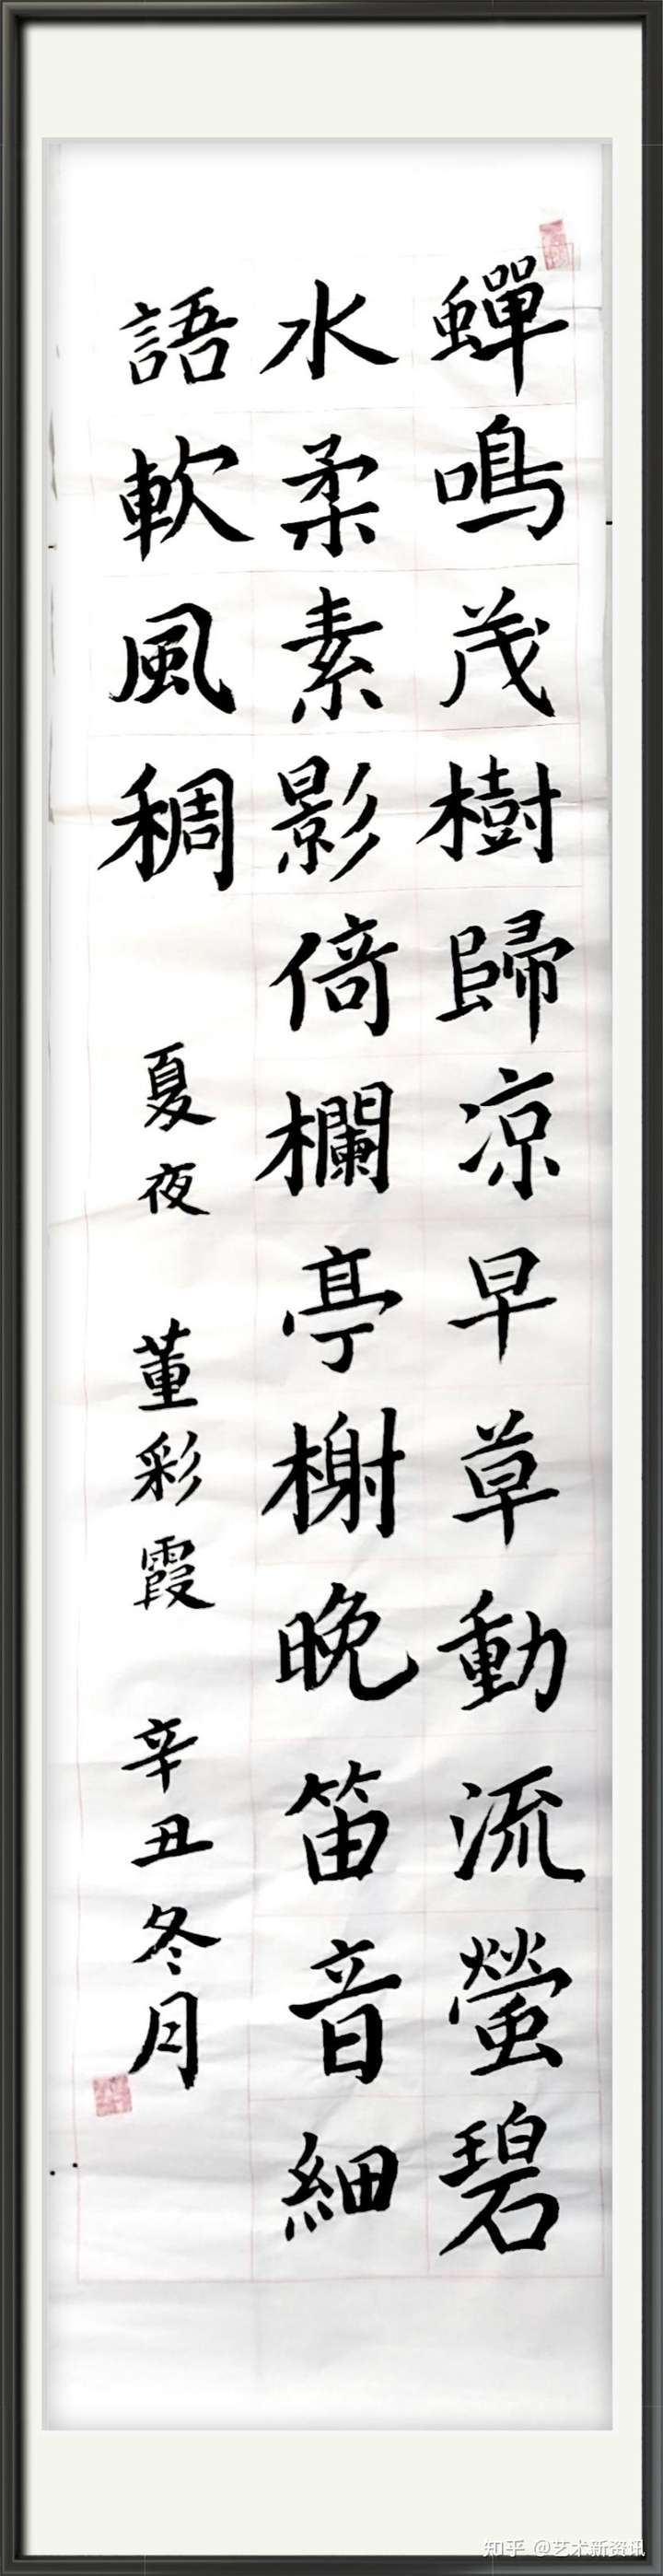 蟬鳴茂樹歸凉早草動流螢碧
水柔素影倚欄亭榭晚笛音細
語軟風稠
夏夜 董彩霞 辛丑冬月
知乎 @艺术新资讯